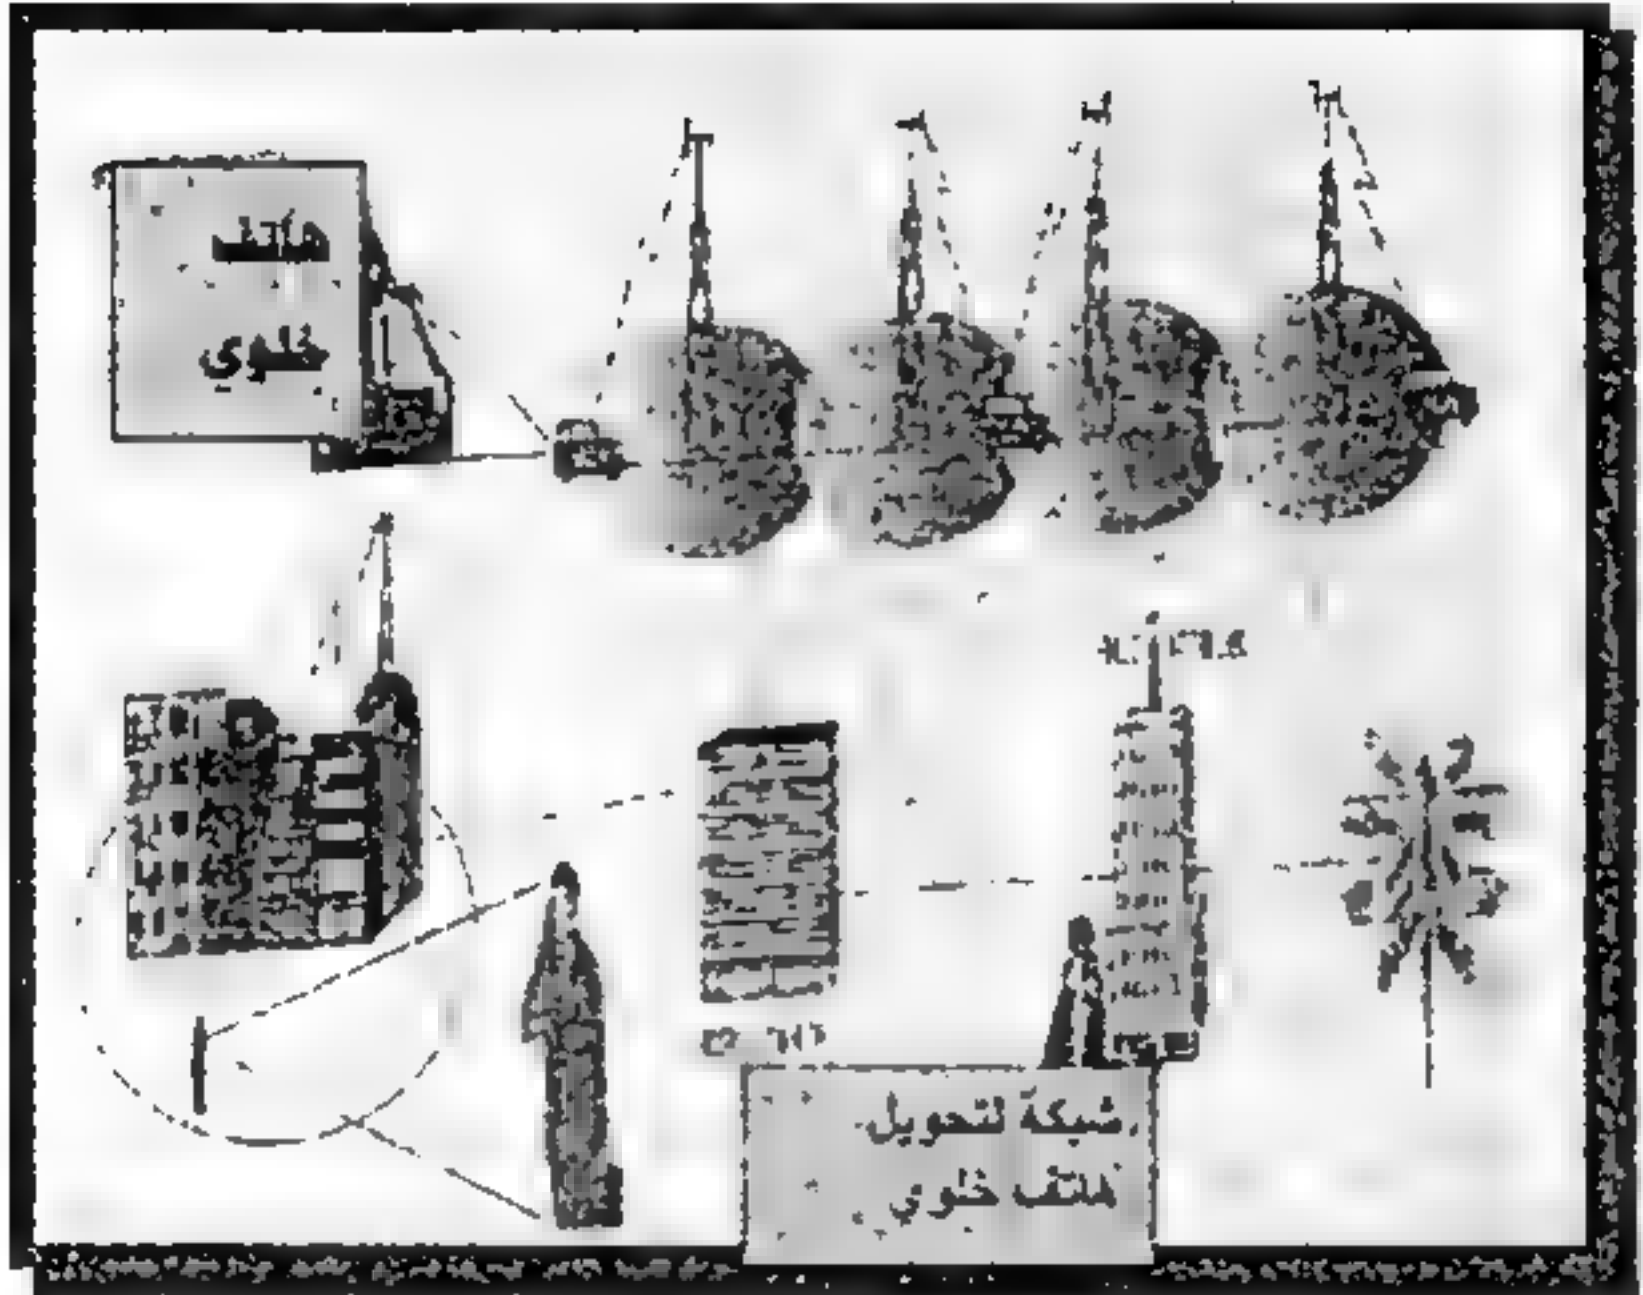 هاتف
خلوي
شبكة لتحويل
هاتف خلوي